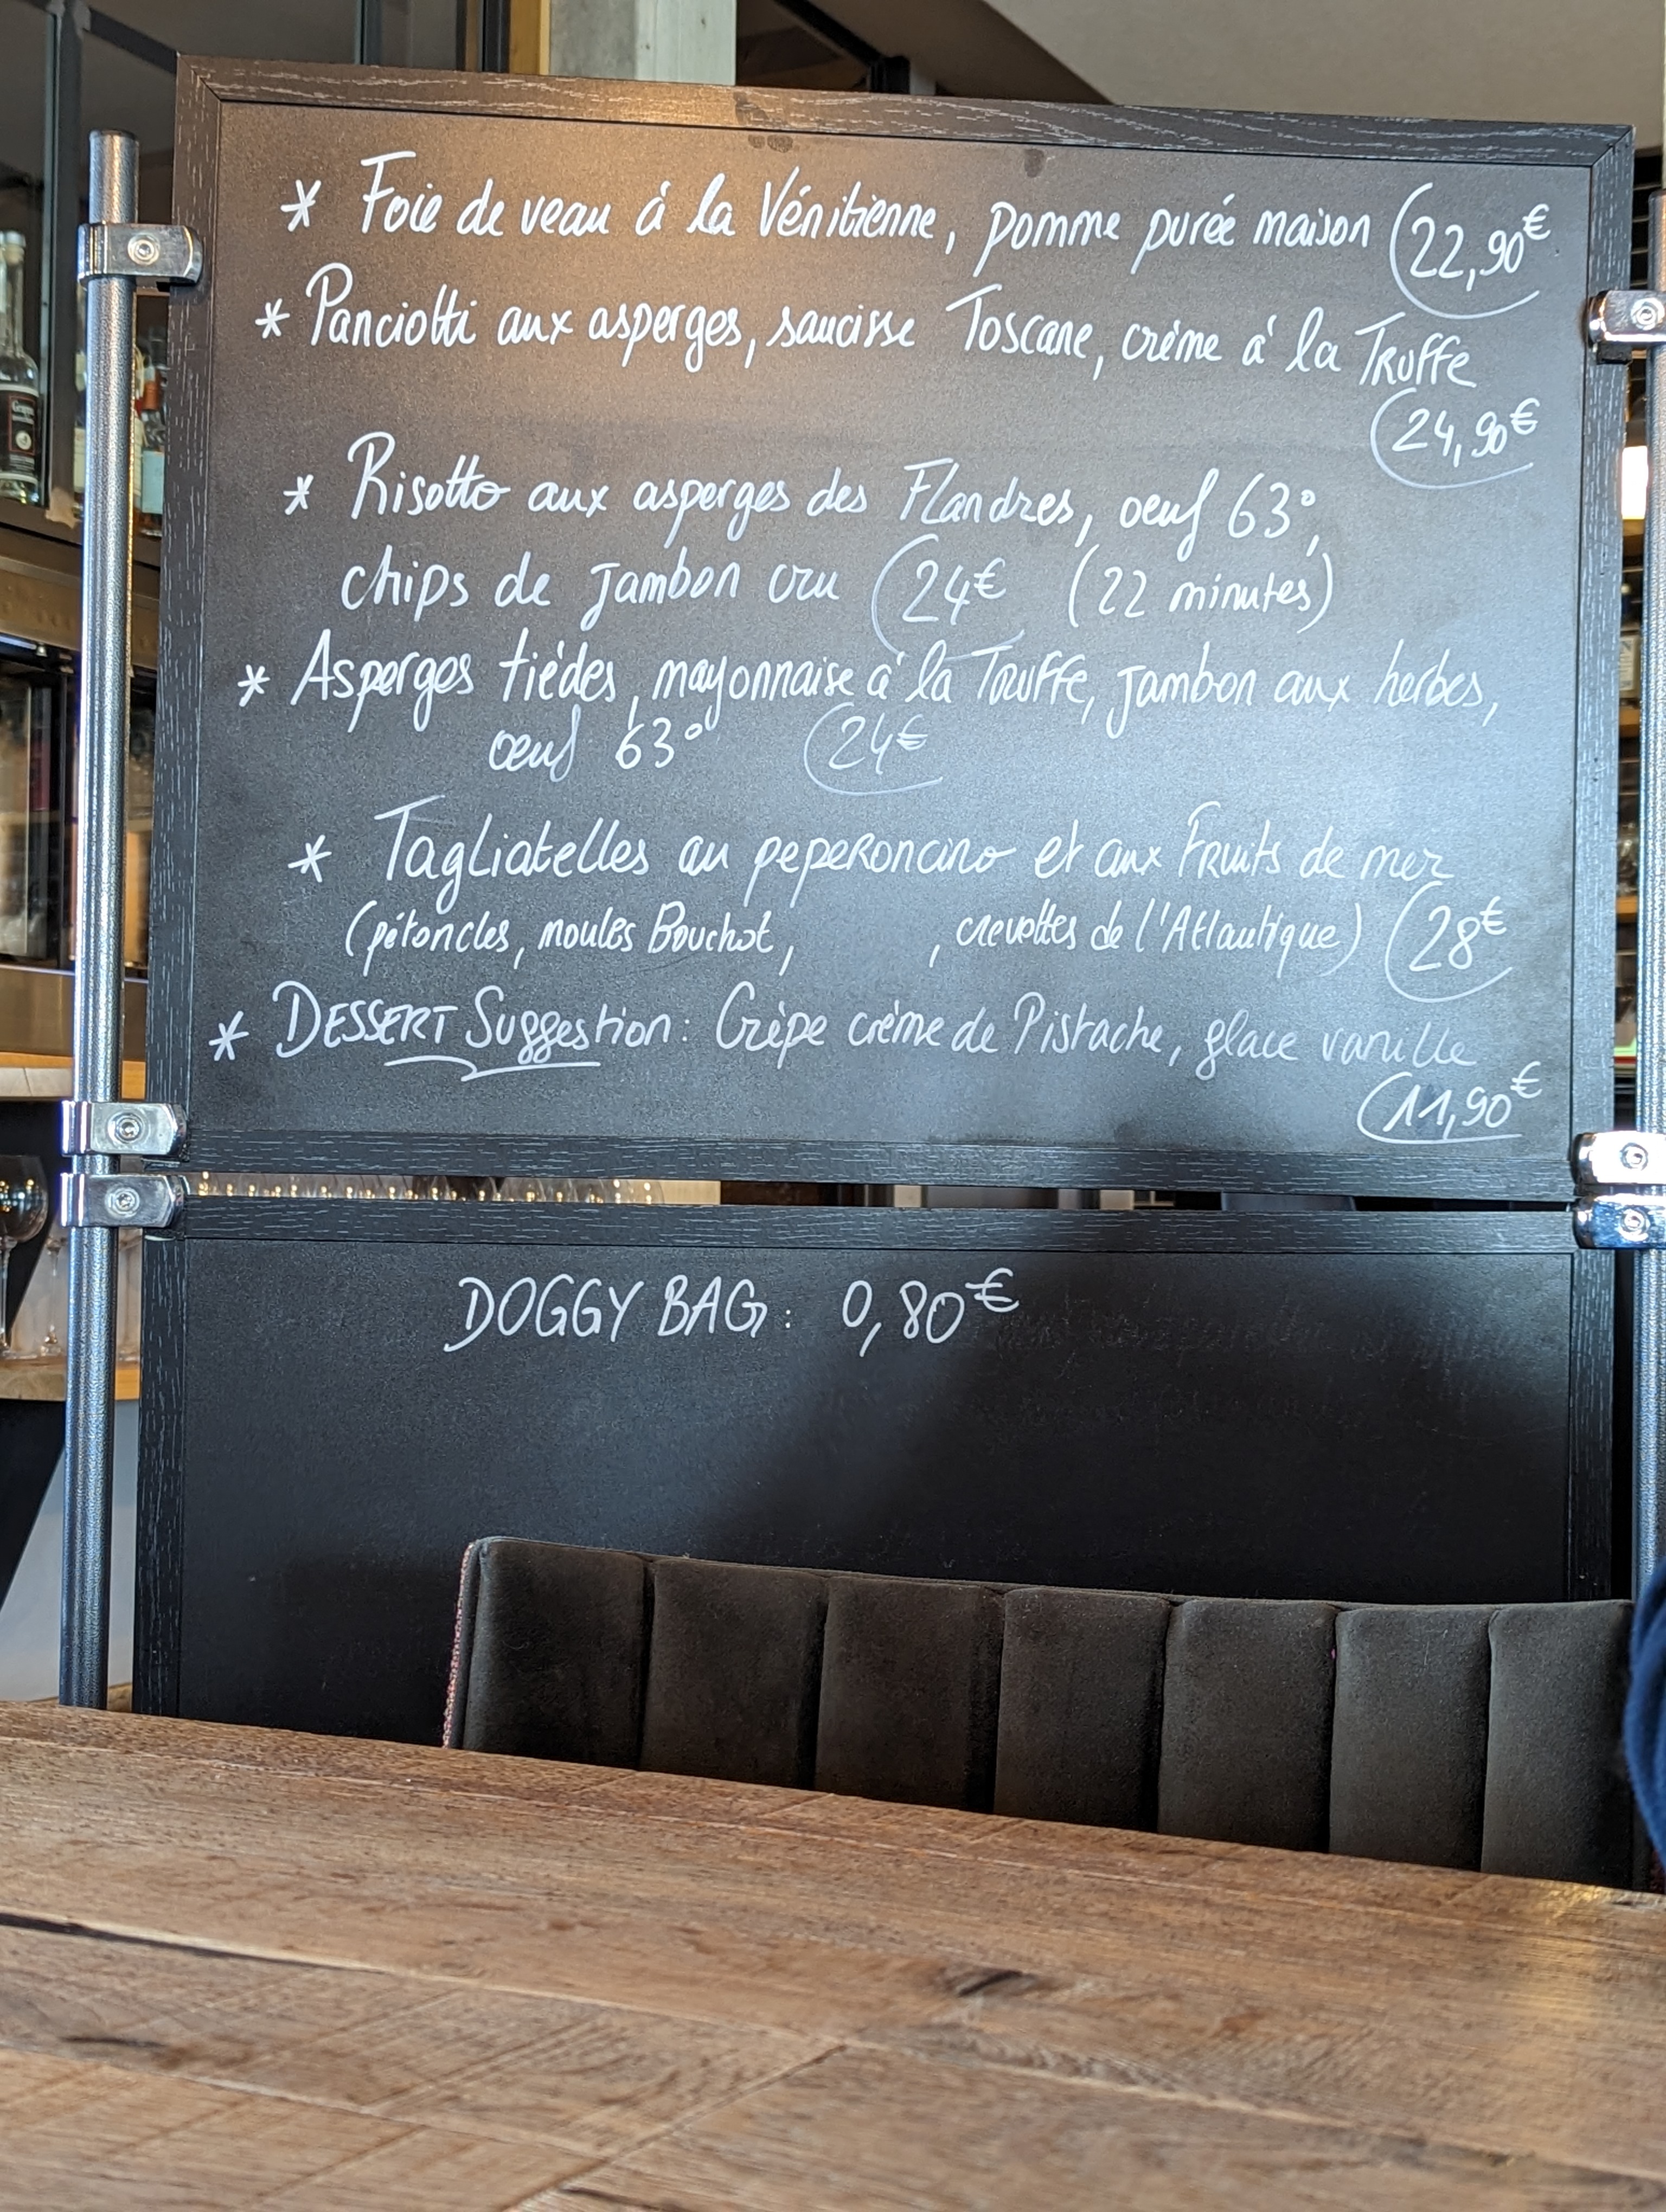 * Foie de veau à la Vénitienne, pomme purée maison 22,90€
* Panciotti aux asperges, saucisse Toscane, crème à la Truffe
24,90€
* Risotto aux asperges des Flandres, oeuf 63°,
chips de jambon cru 24€ (22 minutes)
* Asperges tièdes, mayonnaise à la Truffe, jambon aux herbes,
oeuf 63° 24€
* Tagliatelles au peperoncino et aux Fruits de mer
(pétoncles, moules Bouchot, , crevettes de l'Atlantique) 28€
* DESSERT Suggestion: Crèpe crème de Pistache, glace vanille
11,90€
DOGGY BAG: 0,80€